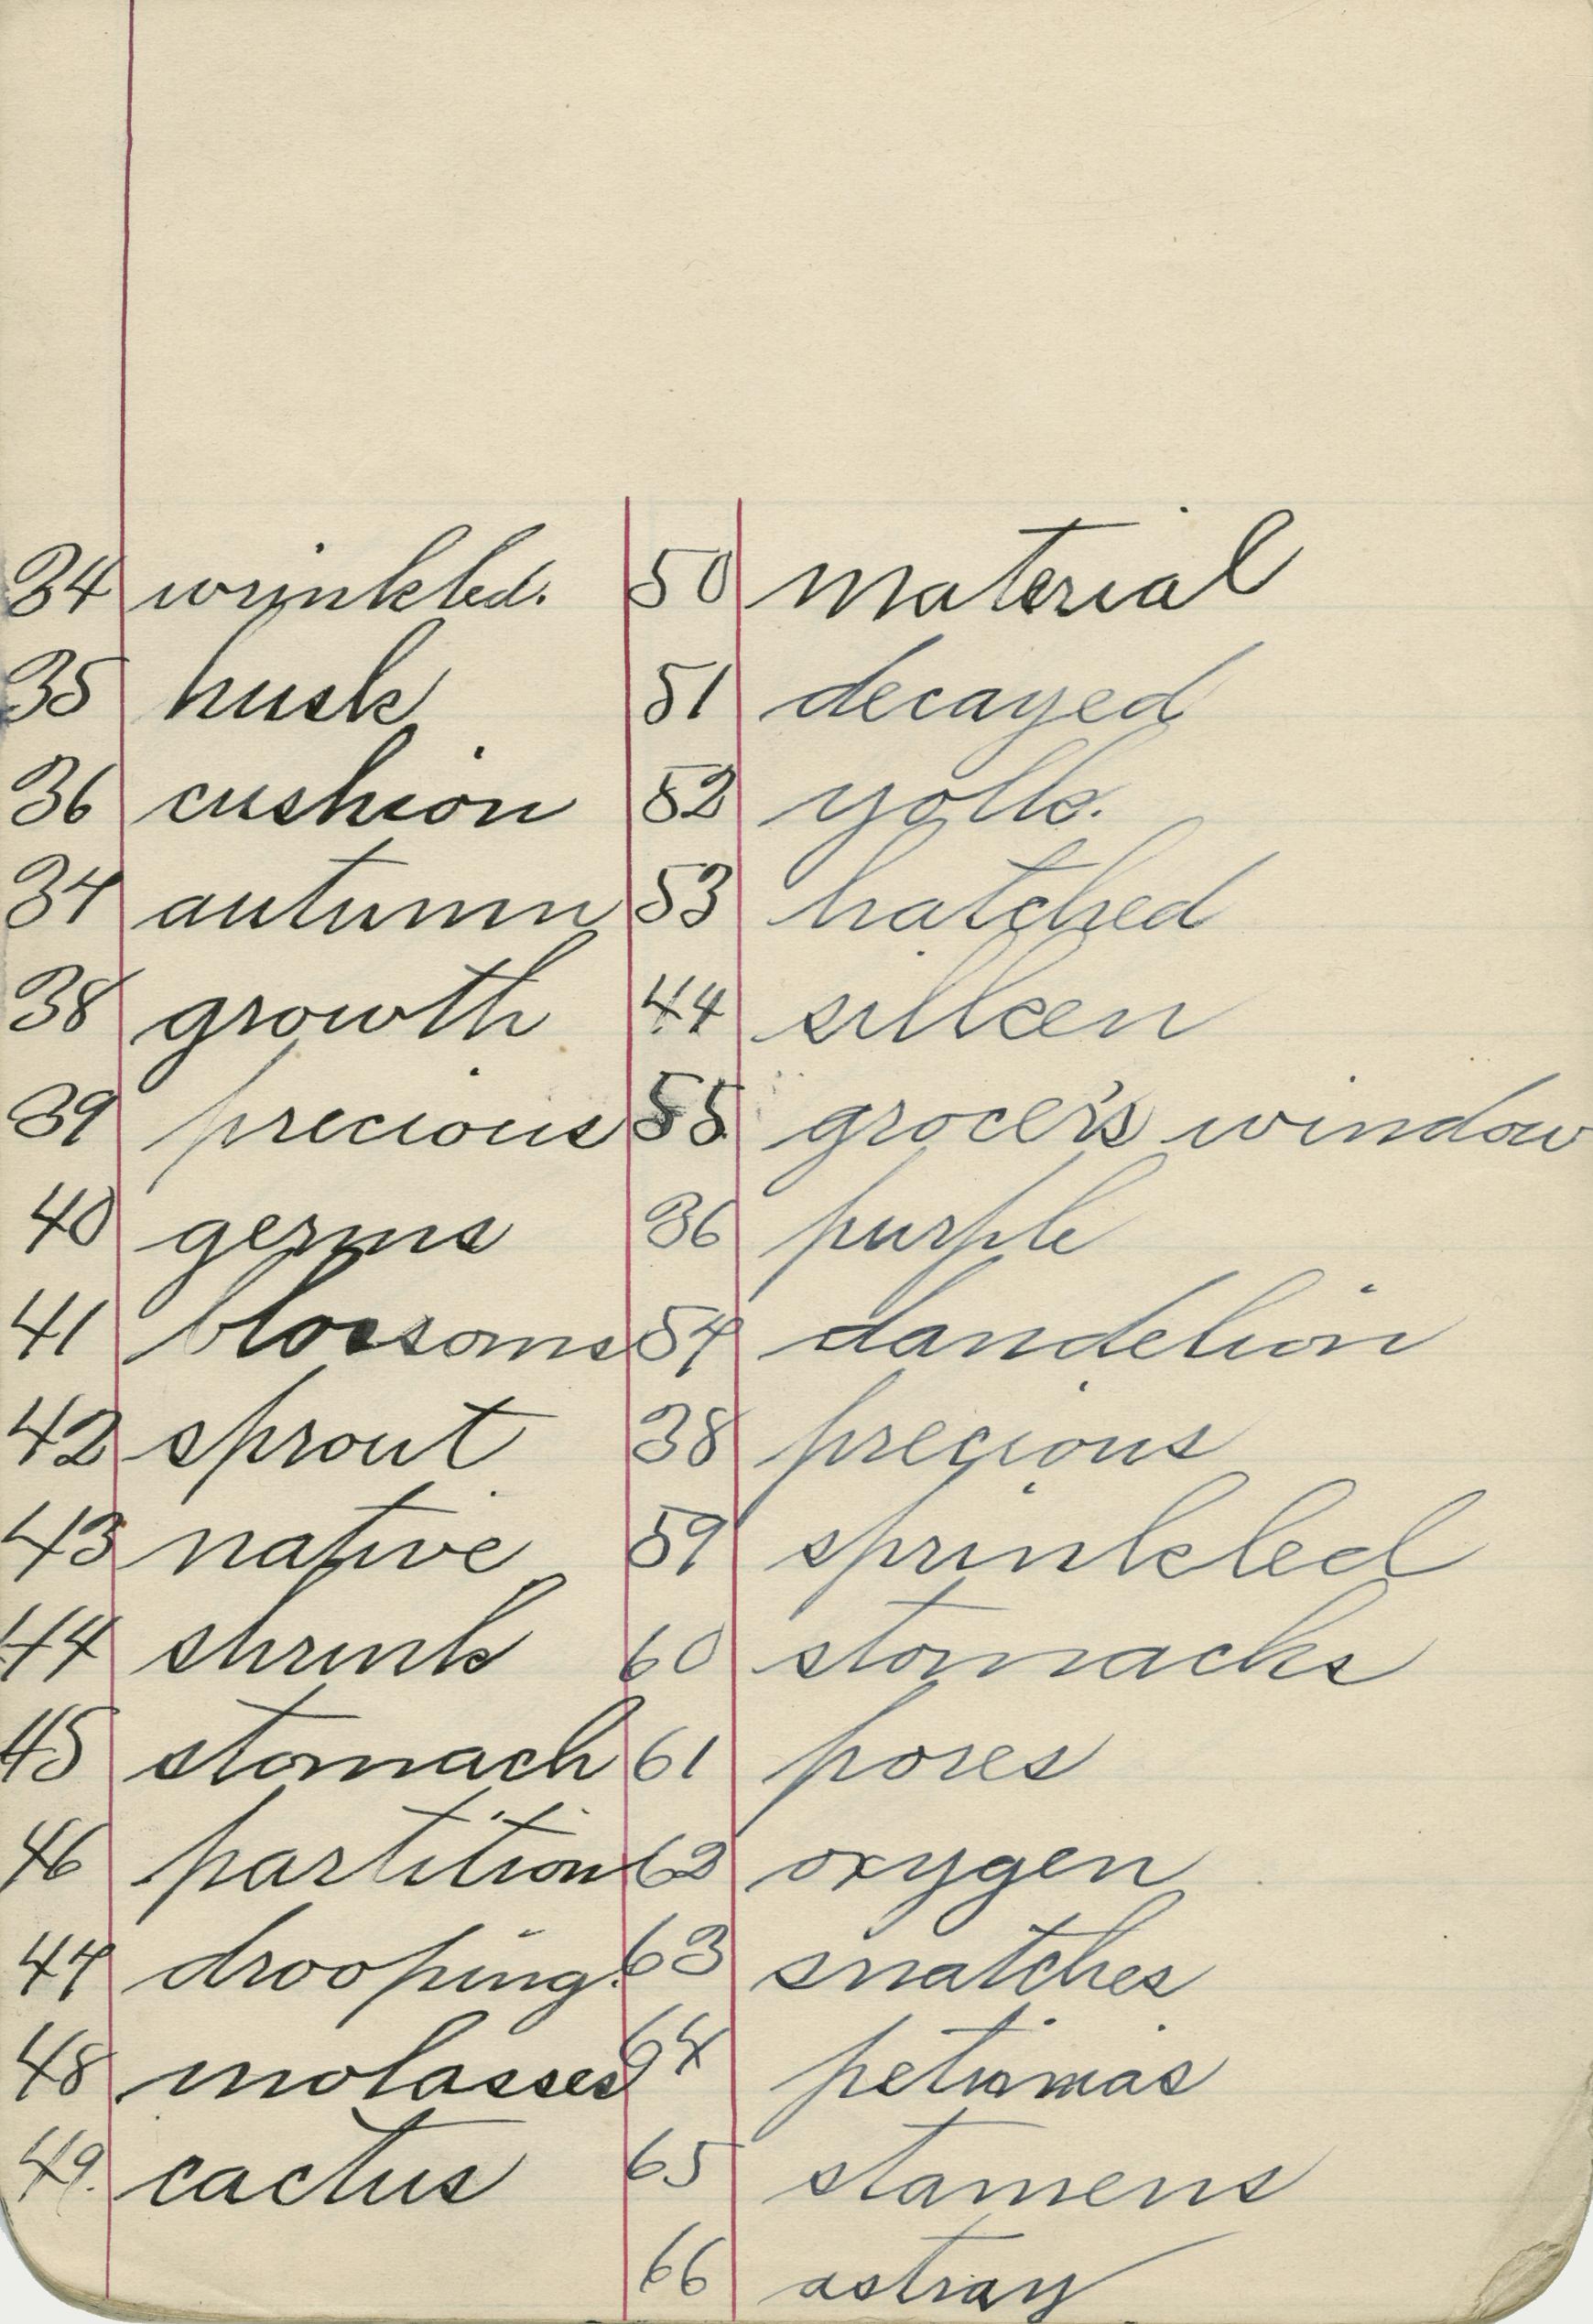 34 wrinkled.
35 husk
36 cushion
37 autumn
38 growth
39 precious
40 germs
41 blossoms
42 sprout
43 native
44 shrink
45 stomach
46 partition
47 drooping.
48 molasses
49. cactus
50 material
51 decayed
52 yolk.
53 hatched
44 silken
55 grocer's window
36 purple
57 dandelion
38 precious
59 sprinkled
60 stomachs
61 pores
62 oxygen
63 snatches
64 petunias
65 stamens
66 astray